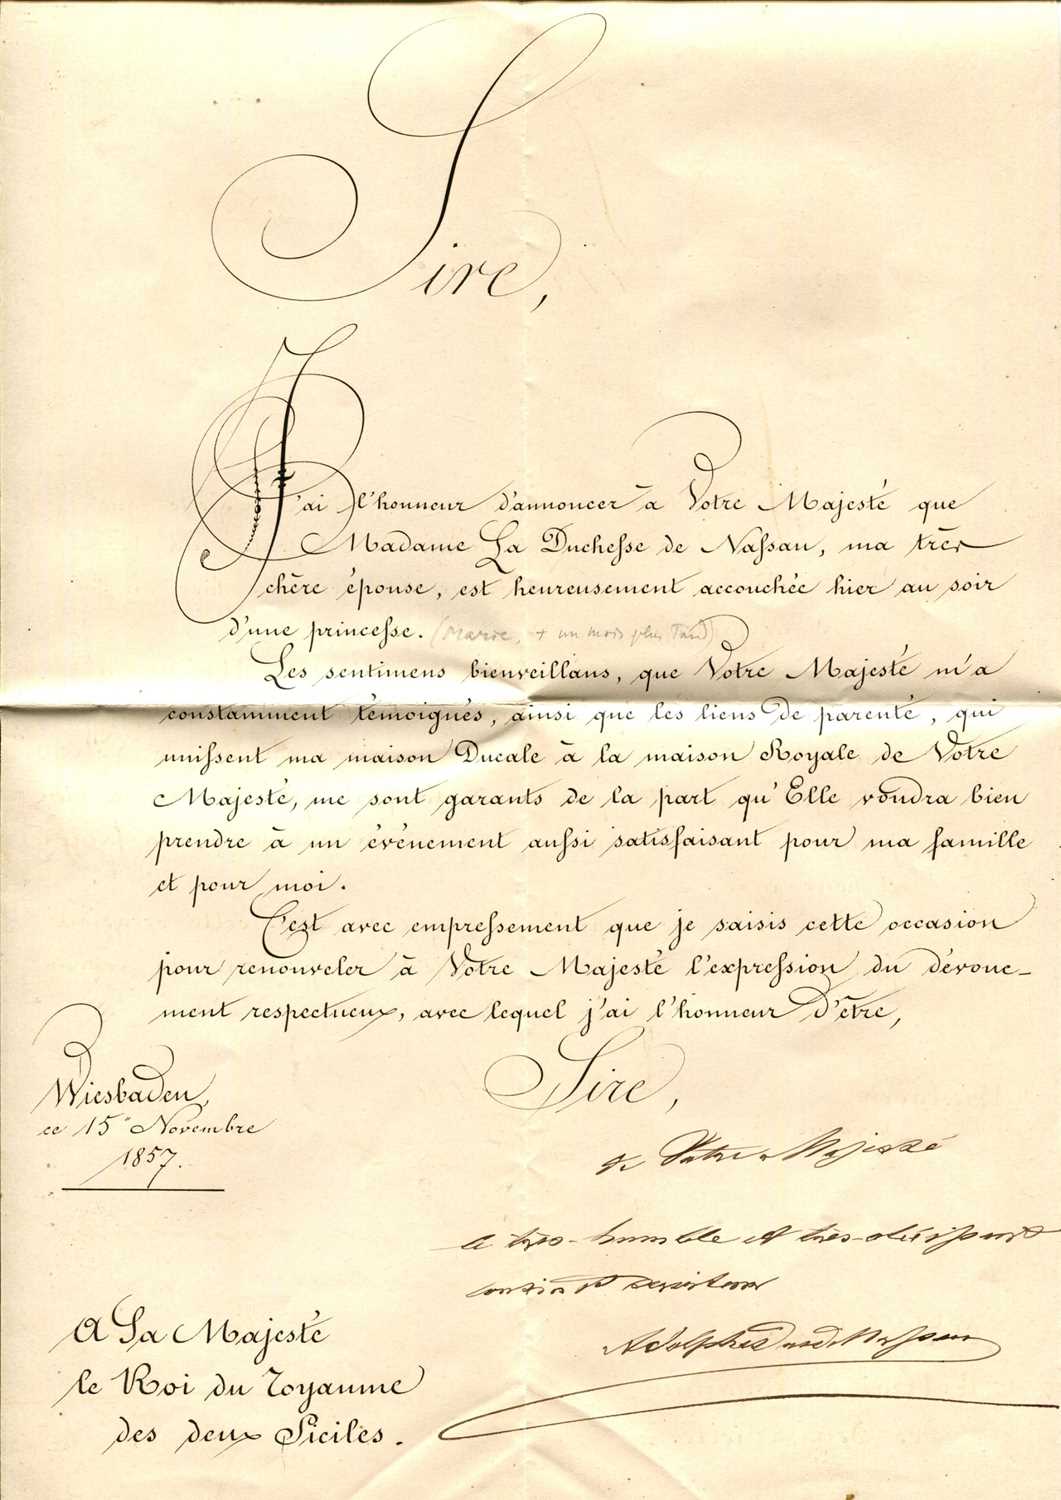 Sire,
J'ai l'honneur d'annoncer à Votre Majesté que
Madame La Duchesse de Nassau, ma très
chère épouse, est heureusement accouchée hier au soir
d'une princesse. (Marie, + un mois plus tard)
Les sentimens bienveillans, que Votre Majesté m'a
constamment témoignés, ainsi que les liens de parenté, qui
unissent ma maison Ducale à la maison Royale de Votre
Majesté, me sont garants de la part qu'Elle voudra bien
prendre à un événement aussi satisfaisant pour ma famille
et pour moi.
C'est avec empressement que je saisis cette occasion
pour renouveler à Votre Majesté l'expression du dévoue-
ment respectueux, avec lequel j'ai l'honneur d'être,
Sire,
Wiesbaden,
ce 15 Novembre
1857.
de Votre Majesté
le très-humble et très-obéissant
et serviteur
Adolphe
A Sa Majesté
le Roi du Royaume
des deux Siciles.